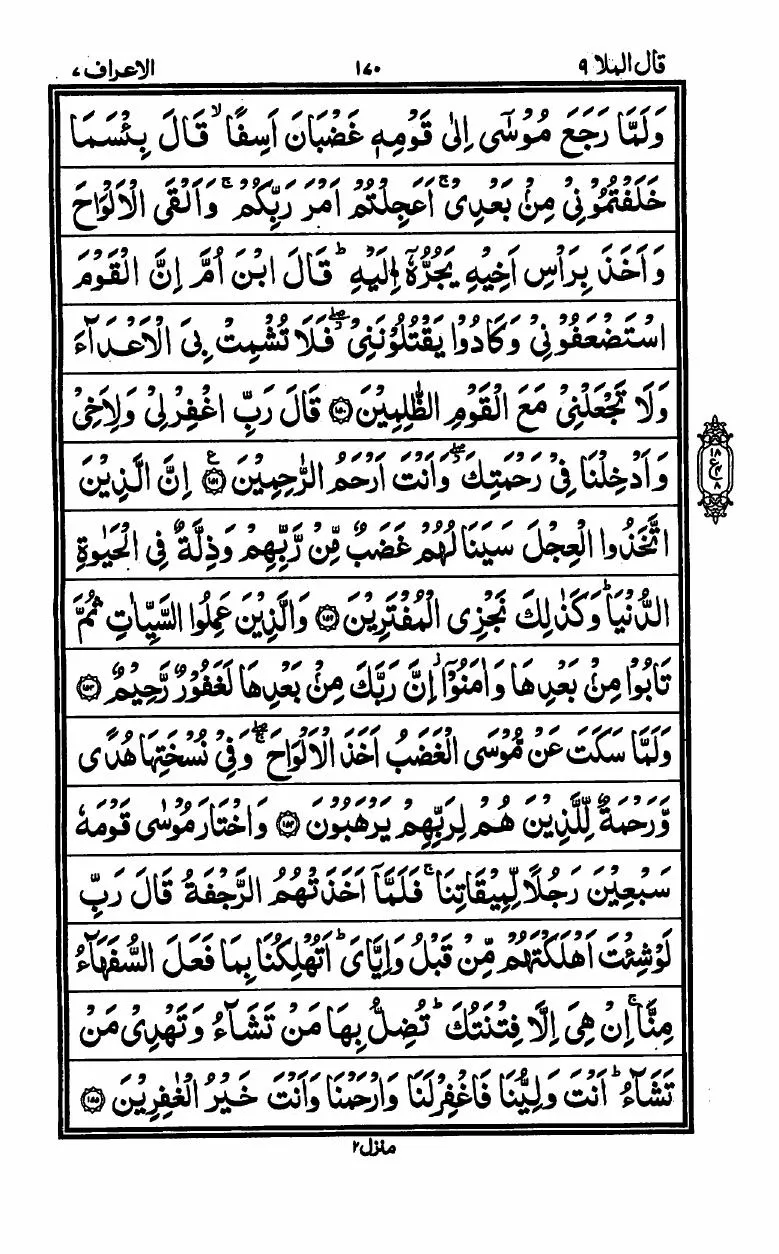 قال الملا ۹
۱۷۰
الاعراف ۷
وَلَمَّا رَجَعَ مُوْسٰٓى اِلٰى قَوْمِهٖ غَضْبَانَ اَسِفًا ۙ قَالَ بِئْسَمَا
خَلَفْتُمُوْنِيْ مِنْۢ بَعْدِيْ ۚ اَعَجِلْتُمْ اَمْرَ رَبِّكُمْ ۚ وَاَلْقَى الْاَلْوَاحَ
وَاَخَذَ بِرَاْسِ اَخِيْهِ يَجُرُّهٗٓ اِلَيْهِ ؕ قَالَ ابْنَ اُمَّ اِنَّ الْقَوْمَ
اسْتَضْعَفُوْنِيْ وَكَادُوْا يَقْتُلُوْنَنِيْ ۖ فَلَا تُشْمِتْ بِيَ الْاَعْدَآءَ
وَلَا تَجْعَلْنِيْ مَعَ الْقَوْمِ الظّٰلِمِيْنَ ۝۱۵۰ قَالَ رَبِّ اغْفِرْ لِيْ وَلِاَخِيْ
وَاَدْخِلْنَا فِيْ رَحْمَتِكَ ۖ وَاَنْتَ اَرْحَمُ الرّٰحِمِيْنَ ۝۱۵۱ ع اِنَّ الَّذِيْنَ
۱۸
ع
۸
اتَّخَذُوا الْعِجْلَ سَيَنَالُهُمْ غَضَبٌ مِّنْ رَّبِّهِمْ وَذِلَّةٌ فِي الْحَيٰوةِ
الدُّنْيَا ؕ وَكَذٰلِكَ نَجْزِي الْمُفْتَرِيْنَ ۝۱۵۲ وَالَّذِيْنَ عَمِلُوا السَّيِّاٰتِ ثُمَّ
تَابُوْا مِنْۢ بَعْدِهَا وَاٰمَنُوْٓا ۚ اِنَّ رَبَّكَ مِنْۢ بَعْدِهَا لَغَفُوْرٌ رَّحِيْمٌ ۝۱۵۳
وَلَمَّا سَكَتَ عَنْ مُّوْسَى الْغَضَبُ اَخَذَ الْاَلْوَاحَ ۖ وَفِيْ نُسْخَتِهَا هُدًى
وَّرَحْمَةٌ لِّلَّذِيْنَ هُمْ لِرَبِّهِمْ يَرْهَبُوْنَ ۝۱۵۴ وَاخْتَارَ مُوْسٰى قَوْمَهٗ
سَبْعِيْنَ رَجُلًا لِّمِيْقَاتِنَا ۚ فَلَمَّآ اَخَذَتْهُمُ الرَّجْفَةُ قَالَ رَبِّ
لَوْ شِئْتَ اَهْلَكْتَهُمْ مِّنْ قَبْلُ وَاِيَّايَ ؕ اَتُهْلِكُنَا بِمَا فَعَلَ السُّفَهَآءُ
مِنَّا ۚ اِنْ هِيَ اِلَّا فِتْنَتُكَ ؕ تُضِلُّ بِهَا مَنْ تَشَآءُ وَتَهْدِيْ مَنْ
تَشَآءُ ؕ اَنْتَ وَلِيُّنَا فَاغْفِرْ لَنَا وَارْحَمْنَا وَاَنْتَ خَيْرُ الْغٰفِرِيْنَ ۝۱۵۵
منزل ۲